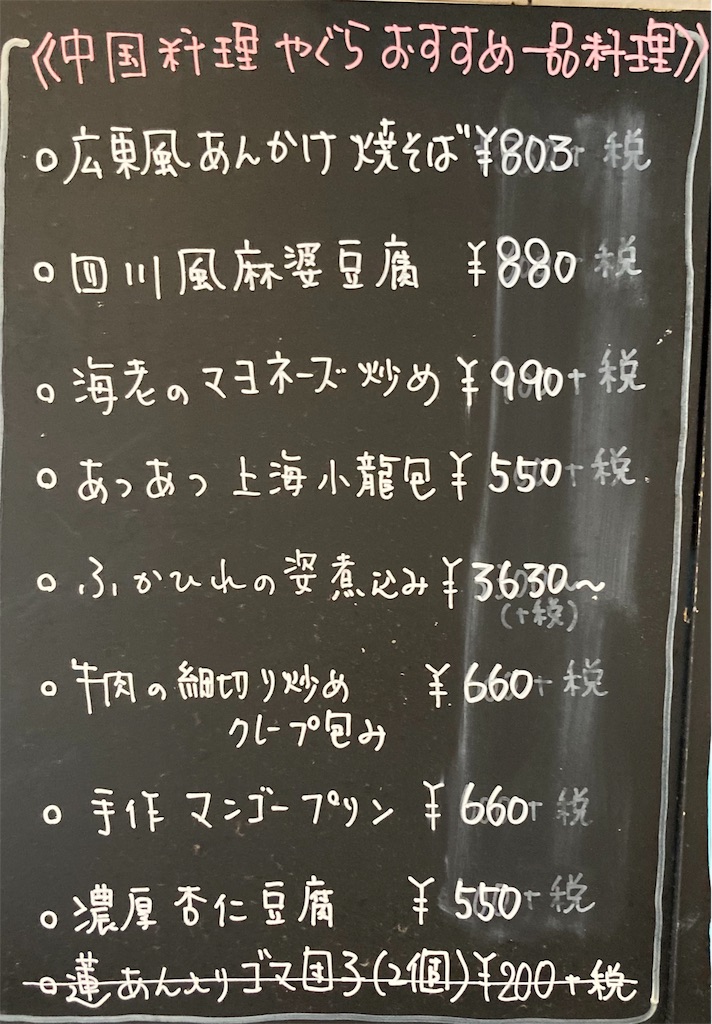 《中国料理 やぐら おすすめ一品料理》
○広東風あんかけ焼そば ¥803+税
○四川風麻婆豆腐 ¥880+税
○海老のマヨネーズ炒め ¥990+税
○あつあつ上海小龍包 ¥550+税
○ふかひれの姿煮込み ¥3630〜
(+税)
○牛肉の細切り炒め ¥660+税
クレープ包み
○手作マンゴープリン ¥660+税
○濃厚杏仁豆腐 ¥550+税
○蓮あん入りゴマ団子(2個)¥200+税